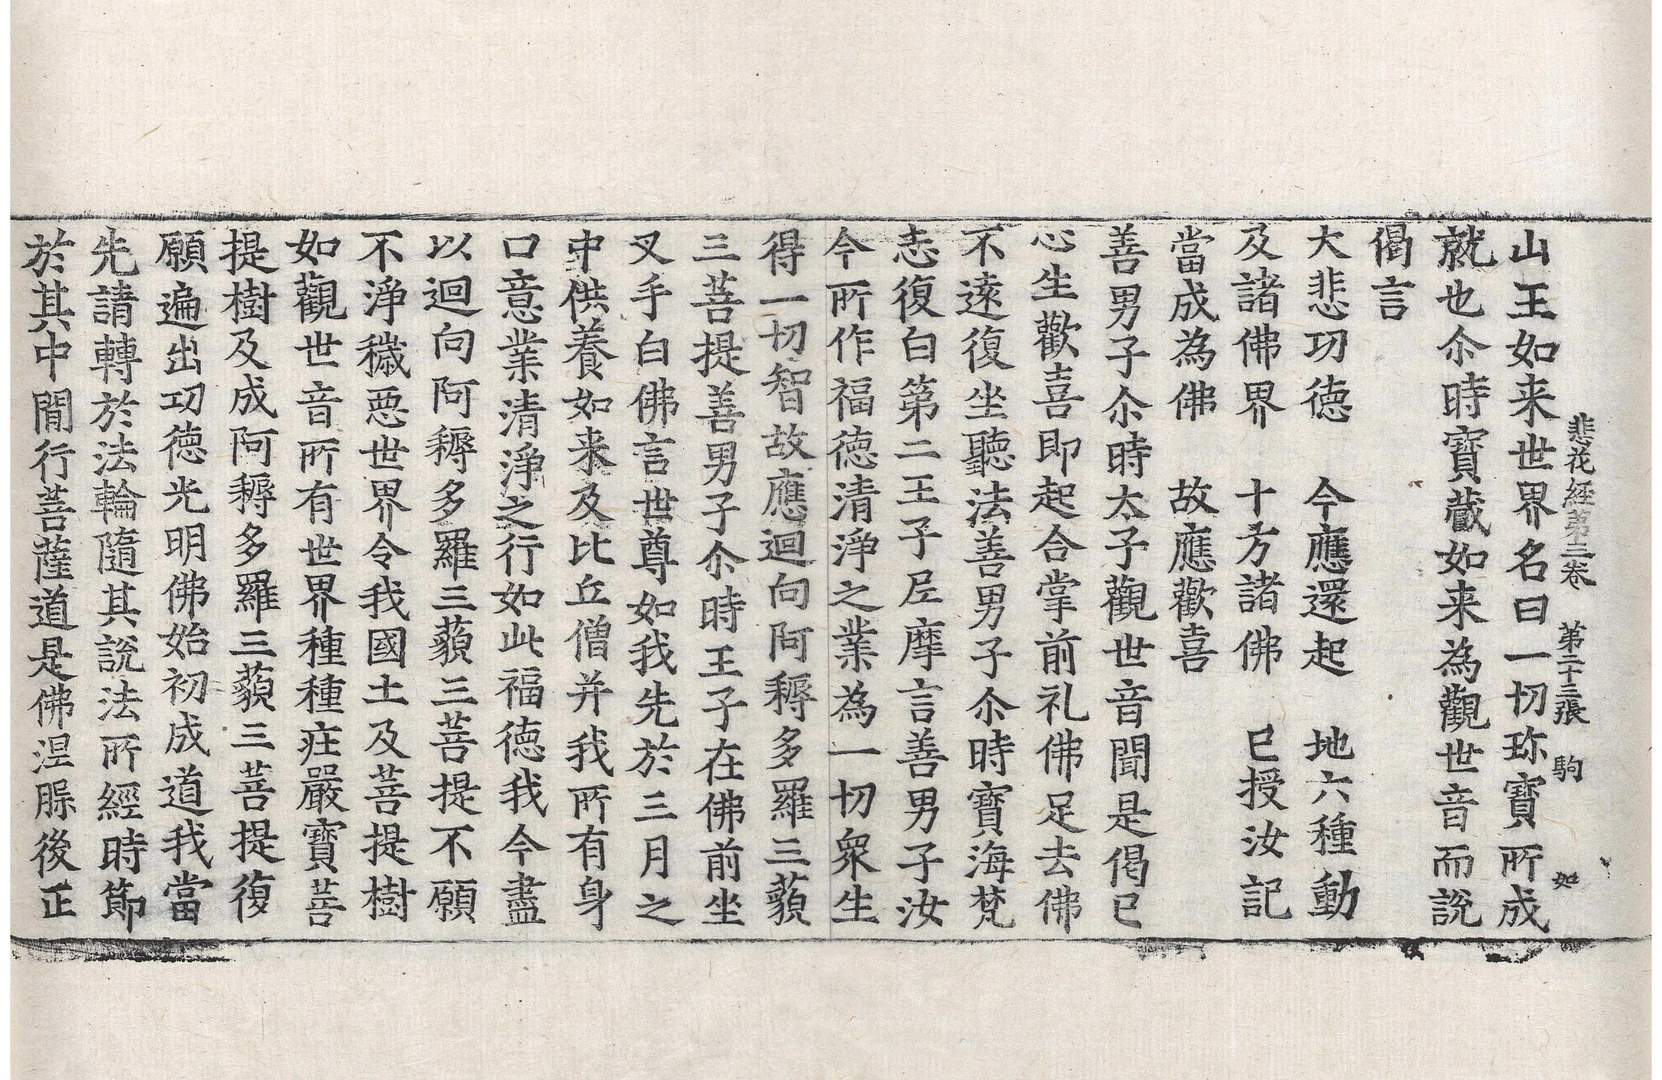 悲花経第三卷　第二十三張　駒　如
山王如来世界名曰一切珎寶所成
就也尒時寶藏如来為觀世音而說
偈言
大悲功德　今應還起　地六種動
及諸佛界　十方諸佛　已授汝記
當成為佛　故應歡喜
善男子尒時太子觀世音聞是偈已
心生歡喜即起合掌前礼佛足去佛
不遠復坐聽法善男子尒時寶海梵
志復白第二王子𡰱摩言善男子汝
今所作福德清淨之業為一切衆生
得一切智故應迴向阿耨多羅三藐
三菩提善男子尒時王子在佛前坐
叉手白佛言世尊如我先於三月之
中供養如来及比丘僧并我所有身
口意業清淨之行如此福德我今盡
以迴向阿耨多羅三藐三菩提不願
不淨穢惡世界令我國土及菩提樹
如觀世音所有世界種種庄嚴寶菩
提樹及成阿耨多羅三藐三菩提復
願遍出功德光明佛始初成道我當
先請轉於法輪隨其說法所經時節
於其中間行菩薩道是佛涅脲後正